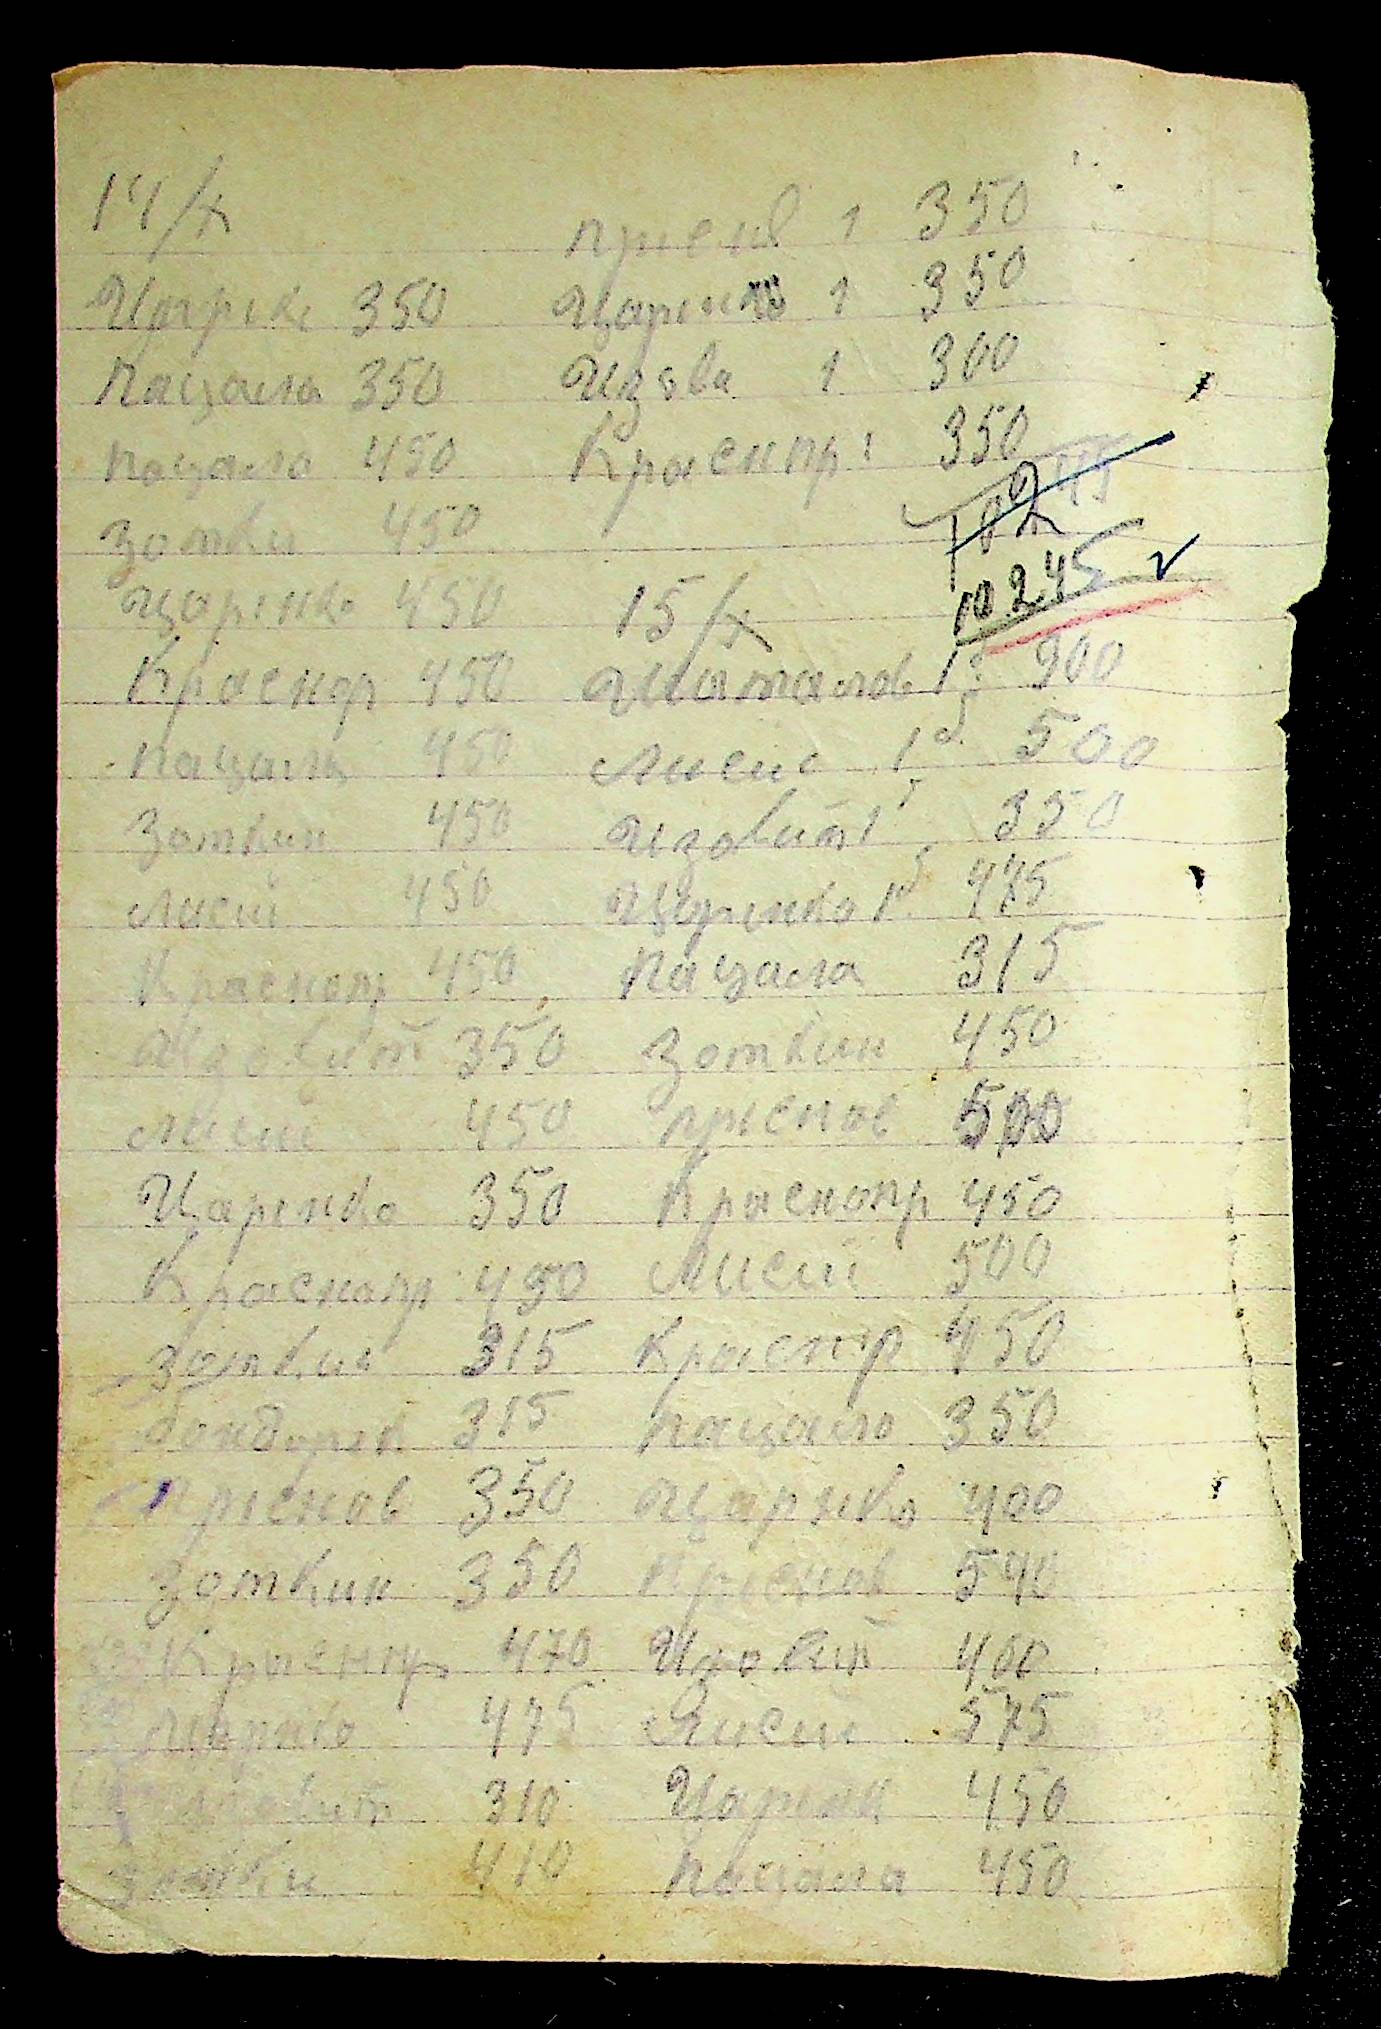 14/х
Царенк 350
Пацала 350
Пацало 450
Зотки 450
Царенко 450
Краснор 450
Пацала 450
Зоткин 450
Лисий 450
Краснопр 450
350
Лисий 450
Царенко 350
Краснопр 450
Зоткин 315
315
Приснов 350
Зоткин 350
Краснпр 470
Царнко 475
310
Зотки 410
Приснв 1 350
Царенко 1 350
Изови 1 300
Краснпр 1 350
10245
10245
15/х
Шаталов 1б 900
Лисий 1б 500
Изовит 1б 350
Царенко 1б 475
Пацала 315
Зоткин 450
Приснов 500
Краснопр 450
Лисий 500
Краснпр 450
Пацало 350
Царнко 400
Приснов 540
Изовит 400
Лисий 575
Царенк 450
Пацала 450